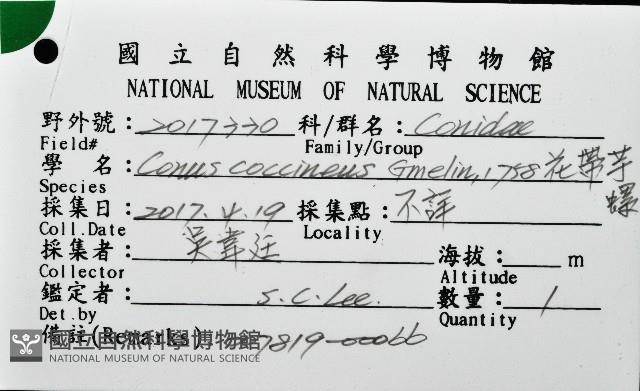 國立自然科學博物館
NATIONAL MUSEUM OF NATURAL SCIENCE
野外號: 科/群名: Conidae
Field# Family/Group
學 名: Conus coccineus Gmelin, 1758 花帶芋螺
Species
採集日: 2017.4.19 採集點: 不詳
Coll.Date Locality
採集者: 吳韋廷 海拔: m
Collector Altitude
鑑定者: S.C.Lee. 數量: 1
Det.by Quantity
備註(Remarks): 7819-00066
國立自然科學博物館
NATIONAL MUSEUM OF NATURAL SCIENCE